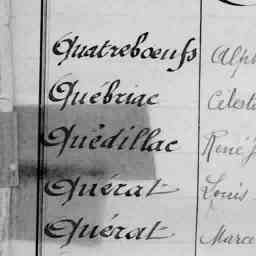 Quatreboeufs Alph
Québriac Célesti
Quédillac René J
Quérat Louis
Quérat Marce